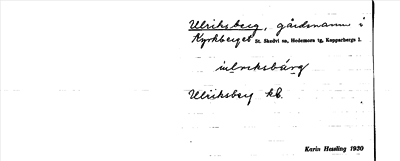 Ulriksberg, gårdsnamn i
Kyrkberget St. Skedvi sn, Hedemora tg, Kopparbergs l.
ulrɩksbárg
Ulriksberg kb.
Karin Hessling 1930